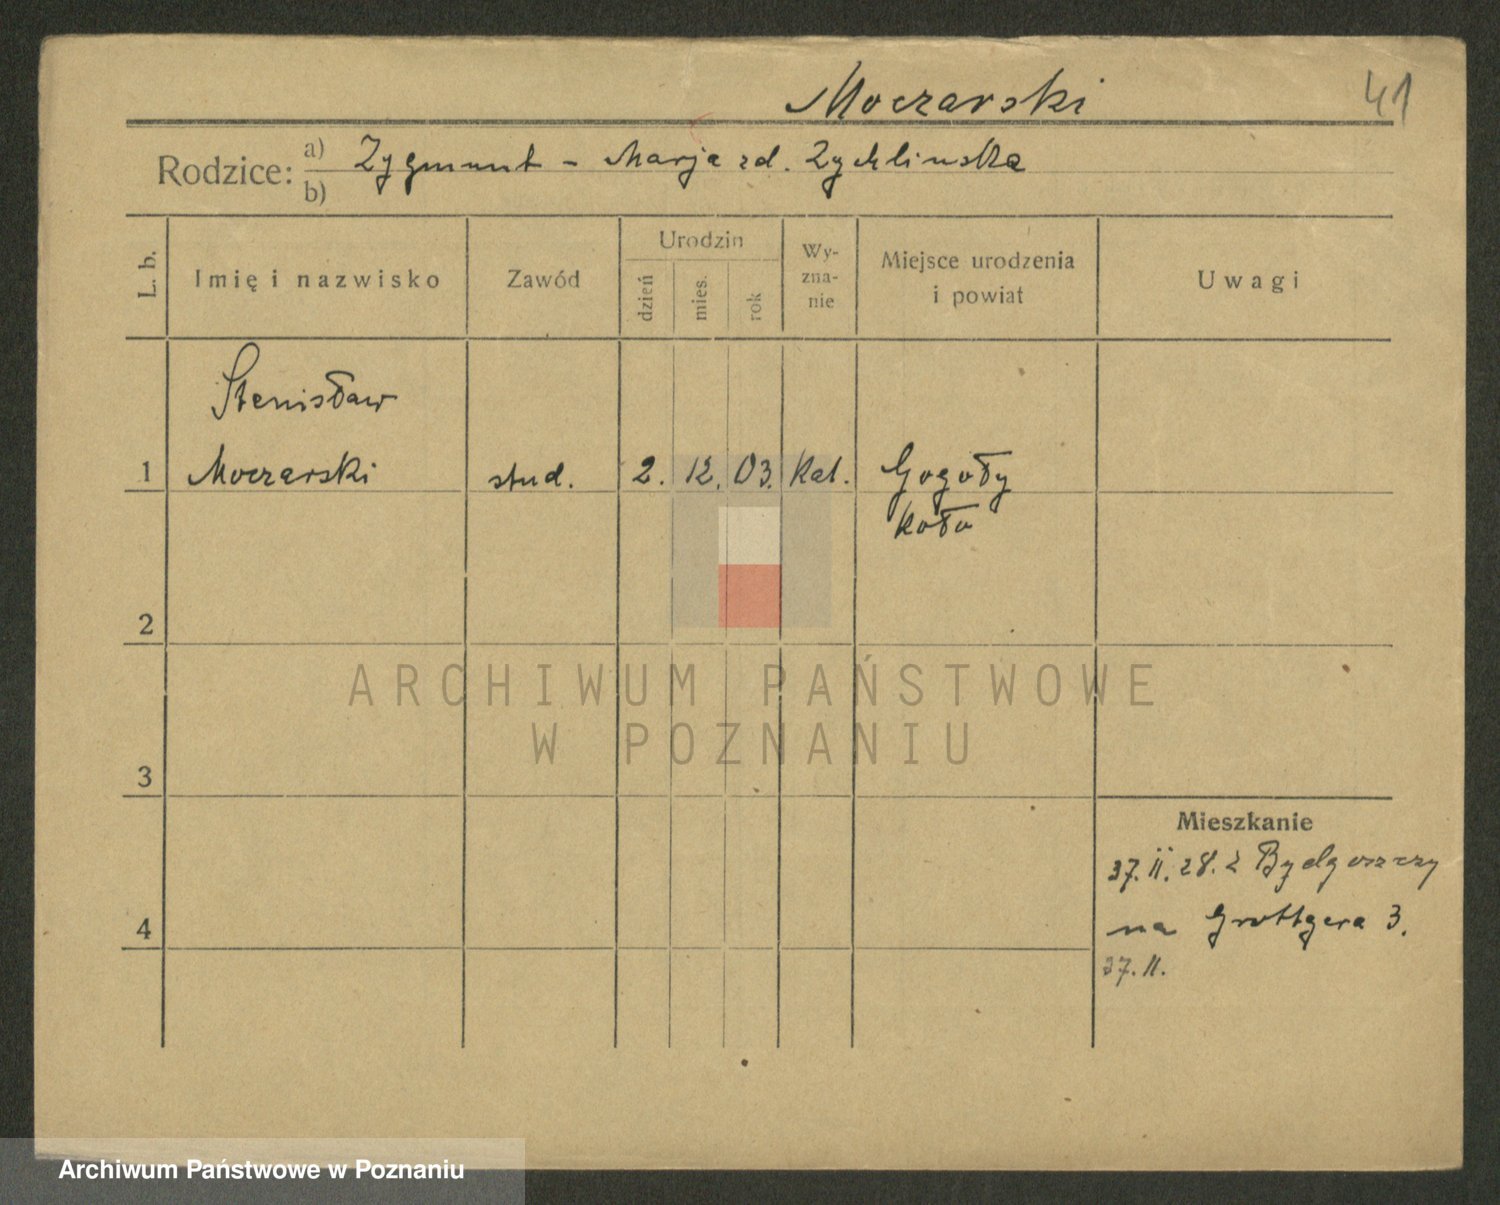 Moczarski 41
Rodzice: a) Zygmunt – Marja zd. Zychlinska
b)
L. b.
Imię i nazwisko
Zawód
Urodzin
dzień
mies.
rok
Wy-
zna-
nie
Miejsce urodzenia
i powiat
Uwagi
Stanisław
1 Moczarski stud. 2. 12. 03. Kat. Gogoły
Koło
2
ARCHIWUM PAŃSTWOWE
W POZNANIU
3
Mieszkanie
27. II. 28. z Bydgoszczy
4
na Grottgera 3.
27. II.
Archiwum Państwowe w Poznaniu